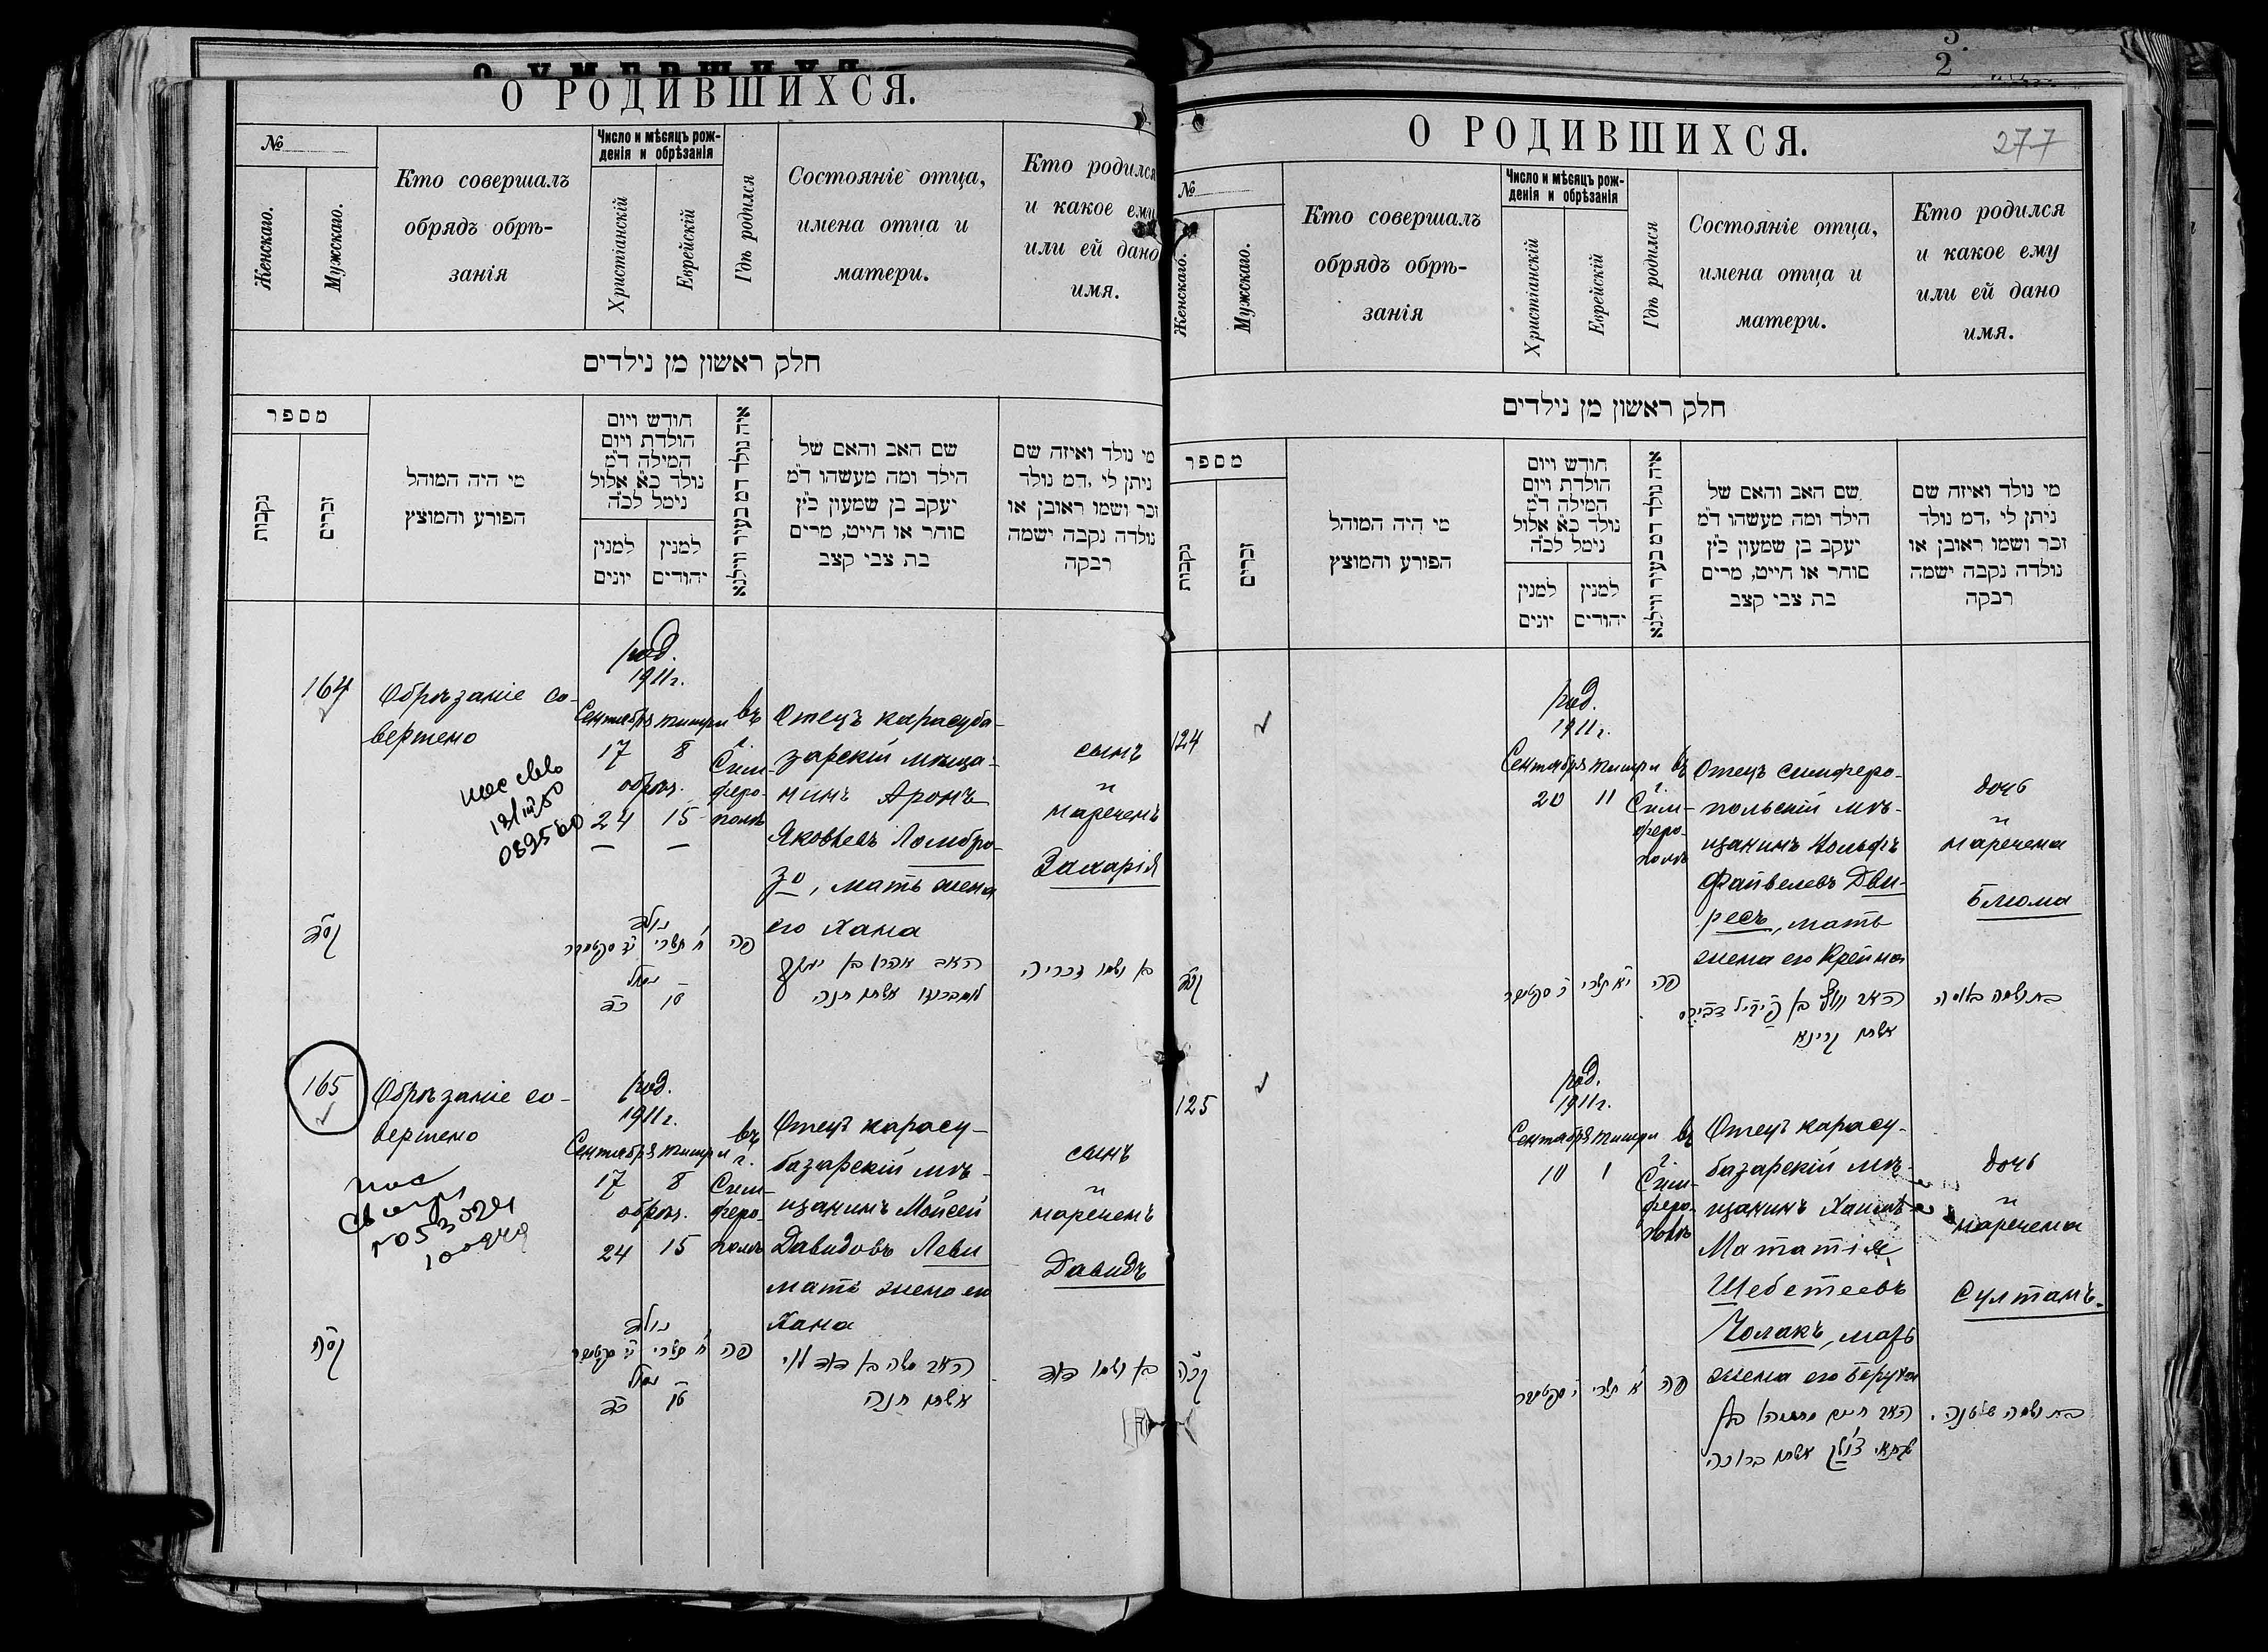 О РОДИВШИХСЯ.
№
Женскаго.
Мужскаго.
Кто совершалъ
обрядъ обрѣ-
занія
Число и мѣсяцъ рож-
денія и обрѣзанія
Христіанскій
Еврейскій
Гдѣ родился
Состояніе отца,
имена отца и
матери.
Кто родился
и какое ему
или ей дано
имя.
חלק ראשון מן נילדים
מספר
נקבות
זכרים
מי היה המוהל
הפורע והמוצץ
חודש ויום
הולדת ויום
המילה ד״מ
נולד כ״א אלול
נימל לכ״ה
למנין
יונים
למנין
יהודים
איה נולד דמ בעיר ווילנא
שם האב והאם של
הילד ומה מעשהו ד״מ
יעקב בן שמעון כ״ץ
סוחר או חייט, מרים
בת צבי קצב
מי נולד ואיזה שם
ניתן לי, דמ נולד
זכר ושמו ראובן או
נולדה נקבה ישמה
רבקה
164
Обрѣзаніе со-
вершено
род.
1911 г.
Сентября тишри
17 8
обрѣз.
24 15
въ
г.
Сим-
феро-
полѣ
Отецъ карасуба-
зарскій мѣща-
нинъ Аронъ
Яковлевъ Ломбро-
зо, мать жена
его Хана
сынъ
и
нареченъ
Захарія
קסד
נולד
ח תשרי
נימול
טו
כד
פה
האב אהרן בן יעקב
לומברוזו אשתו חנה
בן ושמו זכריה
165
Обрѣзаніе со-
вершено
род.
1911 г.
Сентября тишри
17 8
обрѣз.
24 15
въ
г.
Сим-
феро-
полѣ
Отецъ карасу-
базарскій мѣ-
щанинъ Мойсей
Давидовъ Леви
мать жена его
Хана
сынъ
и
нареченъ
Давидъ
קסה
נולד
ח תשרי
נימול
טו
כד
פה
האב משה בן דוד לוי
אשתו חנה
בן ושמו דוד
О РОДИВШИХСЯ.
277
№
Женскаго.
Мужскаго.
Кто совершалъ
обрядъ обрѣ-
занія
Число и мѣсяцъ рож-
денія и обрѣзанія
Христіанскій
Еврейскій
Гдѣ родился
Состояніе отца,
имена отца и
матери.
Кто родился
и какое ему
или ей дано
имя.
חלק ראשון מן נילדים
מספר
נקבות
זכרים
מי היה המוהל
הפורע והמוצץ
חודש ויום
הולדת ויום
המילה ד״מ
נולד כ״א אלול
נימל לכ״ה
למנין
יונים
למנין
יהודים
איה נולד דמ בעיר ווילנא
שם האב והאם של
הילד ומה מעשהו ד״מ
יעקב בן שמעון כ״ץ
סוחר או חייט, מרים
בת צבי קצב
מי נולד ואיזה שם
ניתן לי, דמ נולד
זכר ושמו ראובן או
נולדה נקבה ישמה
רבקה
124
род.
1911 г.
Сентября тишри
20 11
въ
г.
Сим-
феро-
полѣ
Отецъ симферо-
польскій мѣ-
щанинъ Вольфъ
Файвелевъ Дви-
ресъ, мать
жена его Крейна
дочь
и
наречена
Блюма
קכד
יא תשרי
פה
אשתו קריינא
בת ושמה בלומה
125
род.
1911 г.
Сентября тишри
10 1
въ
г.
Сим-
феро-
полѣ
Отецъ карасу-
базарскій мѣ-
щанинъ Хаимъ
Мататія
Шебетеевъ
Чолакъ, мать
жена его Беруха
дочь
и
наречена
Султанъ.
קכה
א תשרי
פה
האב חיים מתתיהו בן
שבתאי צולק אשתו ברוכה
בת ושמה שולטנה.